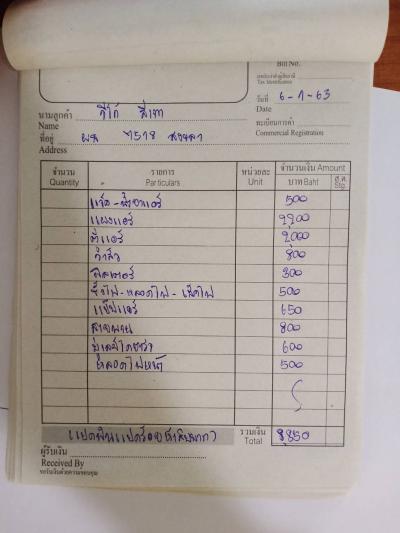 Bill No.
เลขประจำตัวผู้เสียภาษี
Tax Identification
วันที่ 6-1-63
Date
นามลูกค้า วีโก้ สีเทา
Name
ทะเบียนการค้า
Commercial Registration
ที่อยู่ ผล 7518 สงขลา
Address
จำนวน รายการ หน่วยละ จำนวนเงิน Amount
Quantity Particulars Unit บาท Baht ส.ต. Stg.
500
แผงแอร์ 2200
ตู้แอร์ 2000
วาล์ว 800
ฟิลเตอร์ 300
500
650
สายพาน 800
มู่เลย์ไดชาร์จ 600
หลอดไฟหน้า 500
(แปดพันแปดร้อยห้าสิบบาท) รวมเงิน 8,850
Total
ผู้รับเงิน
Received By
ขอรับเงินด้วยความขอบคุณ